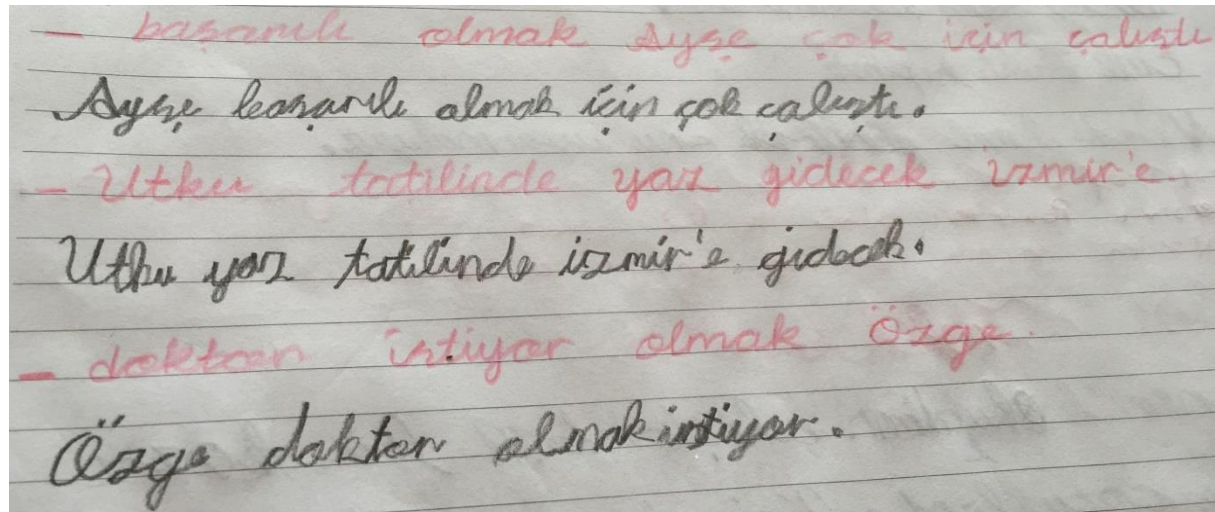 - başarılı olmak Ayşe çok için çalıştı
Ayşe başarılı olmak için çok çalıştı.
- Utku tatilinde yaz gidecek izmir'e.
Utku yaz tatilinde izmir'e gidecek.
- doktor istiyor olmak Özge.
Özge doktor olmak istiyor.